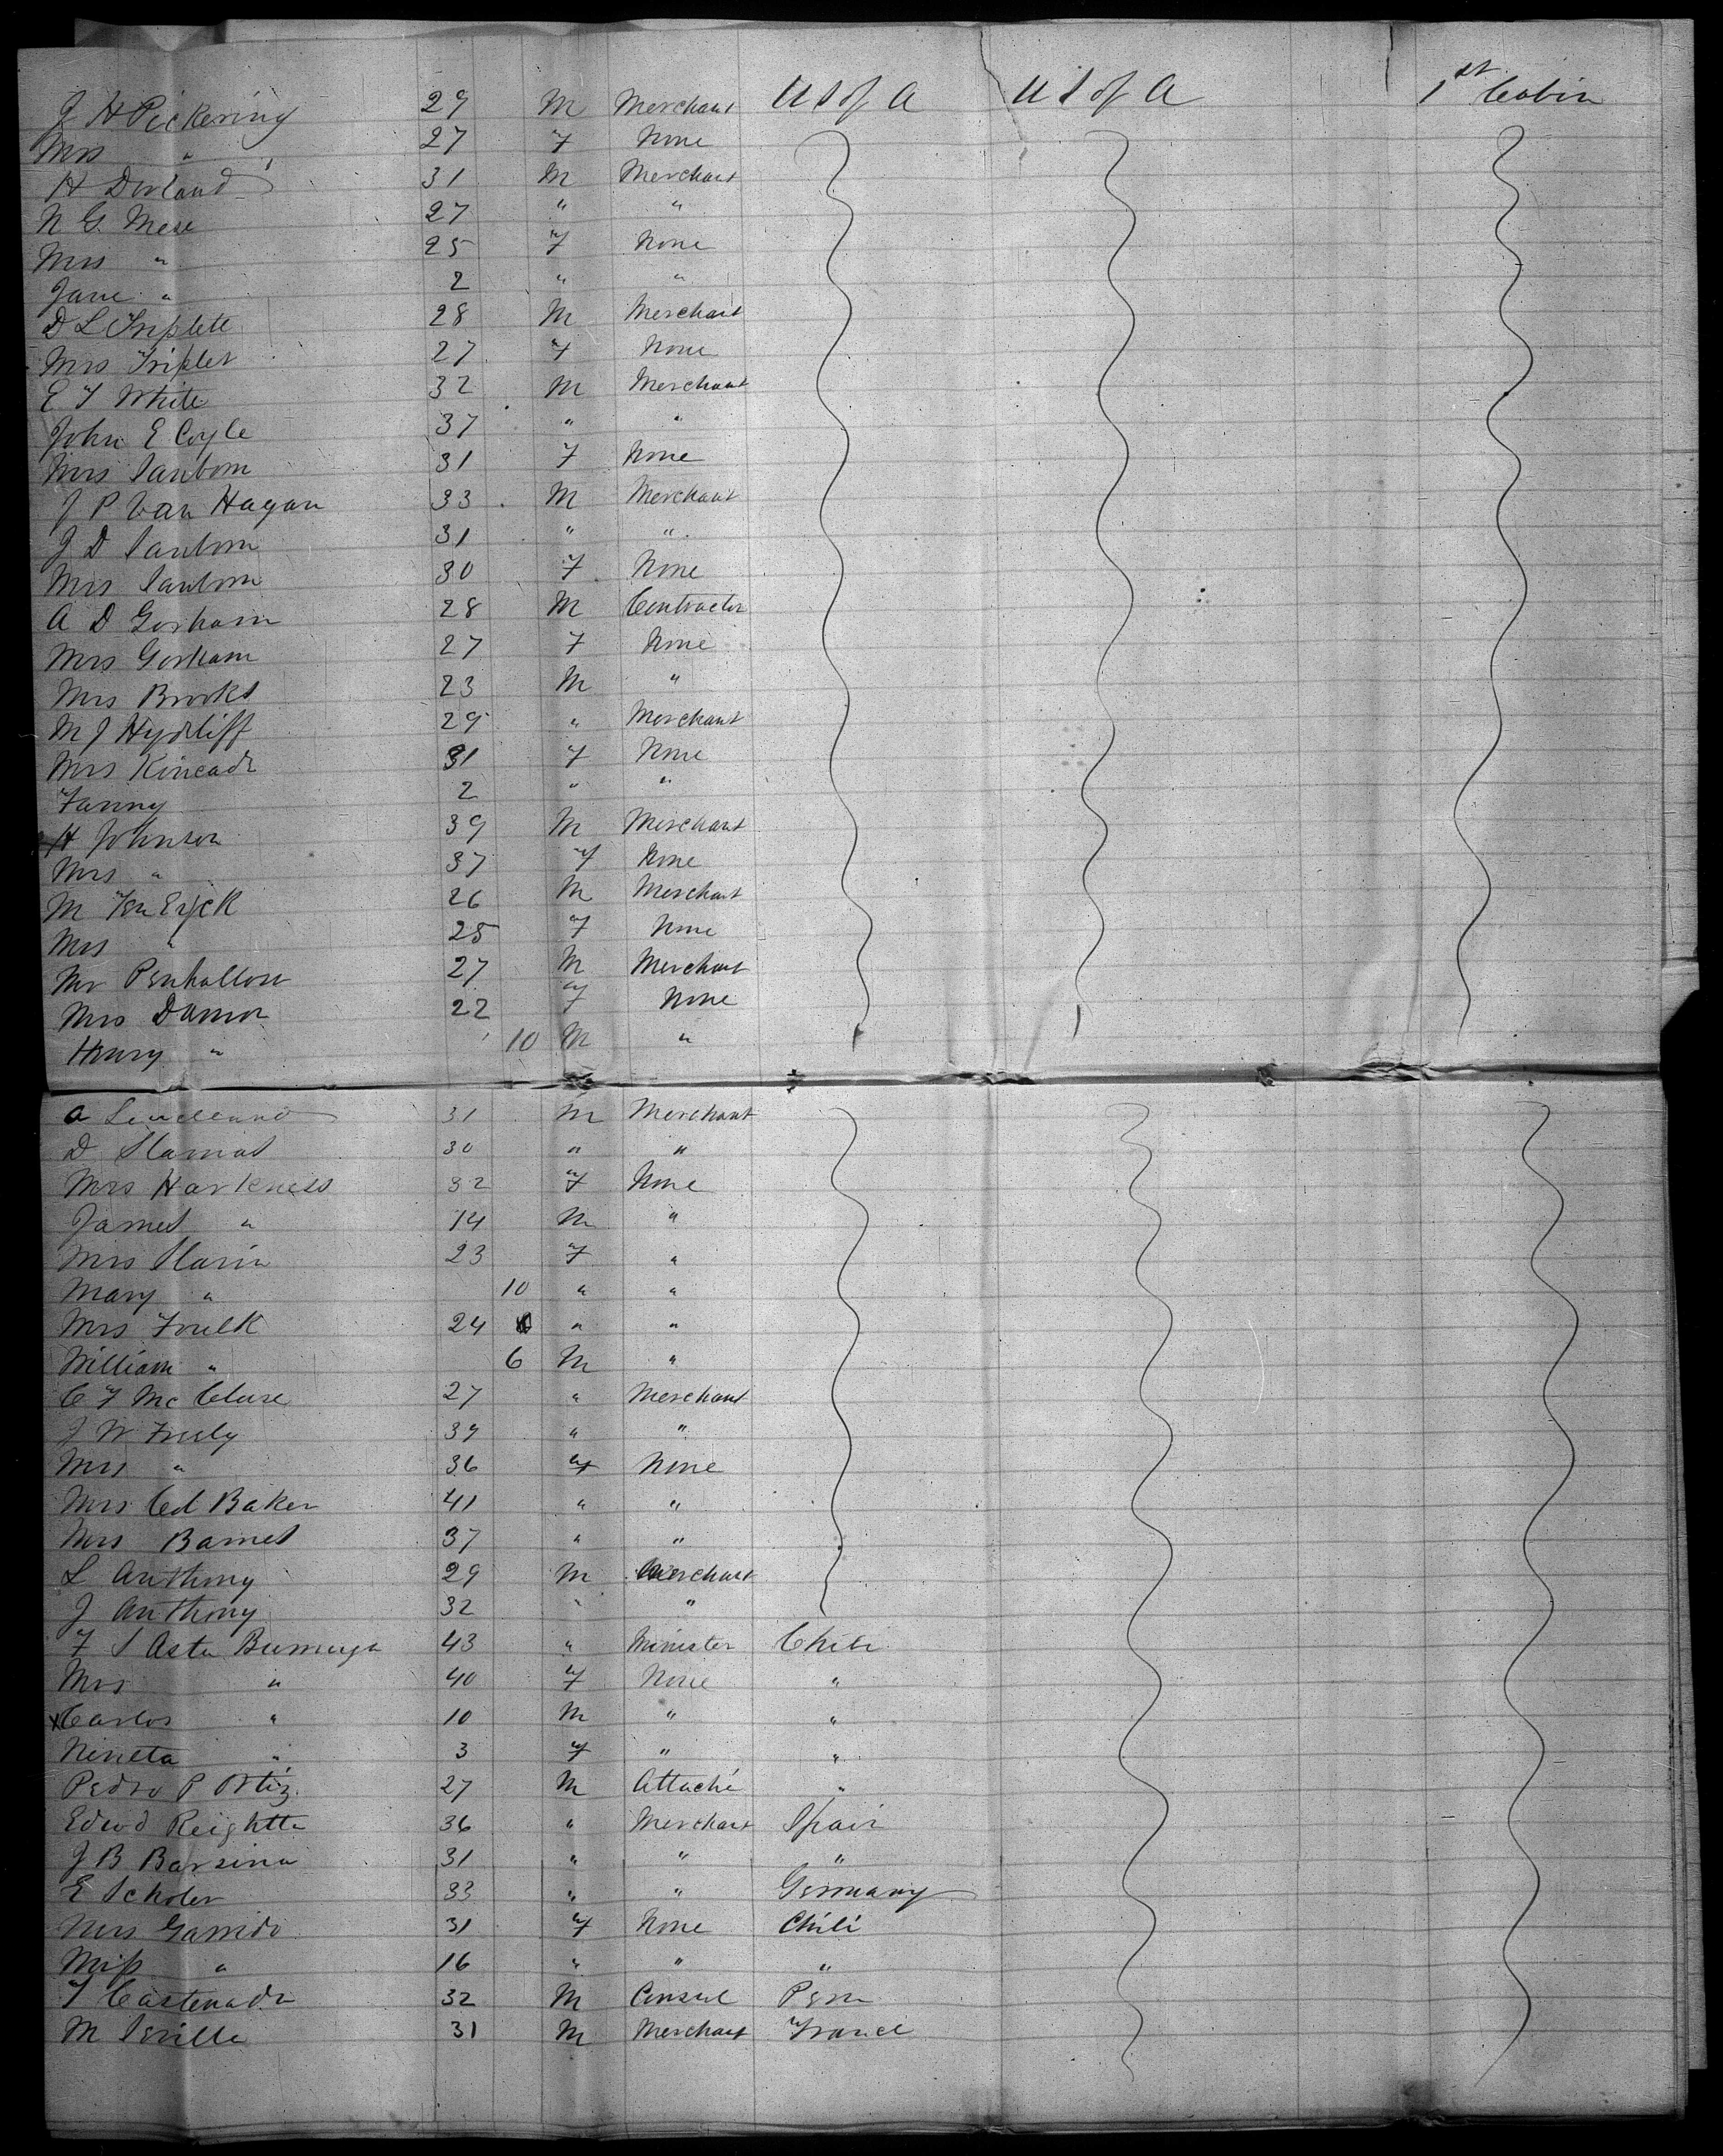 J H Pickering 29 M Merchant U S of A U S of A 1st Cabin
Mrs " 27 F None
H Dorland 31 M Merchant
N G. Mese 27 " "
Mrs " 25 F None
Jane " 2 " "
D L Triplete 28 M Merchant
Mrs Triplet 27 F None
E F White 32 M Merchant
John E Coyle 37 " "
Mrs Sanborn 31 F None
J P Van Hagan 33 M Merchant
J D Sanborn 31 " "
Mrs Sanborn 30 F None
A D Gorham 28 M Contractor
Mrs Gorham 27 F None
Mrs Brooks 23 M "
M J Hydliff 29 " Merchant
Mrs Kincade 31 F None
Fanny 2 " "
H Johnson 39 M Merchant
Mrs " 37 F None
M Ten Eyck 26 M Merchant
Mrs " 25 F None
Mr Penhallow 27 M Merchant
Mrs Damon 22 F None
Henry " 10 M "
A 31 M Merchant
D 30 " "
Mrs Harkness 32 F None
James " 14 M "
Mrs 23 F "
Mary " 10 " "
Mrs Foulk 24 " "
William " 6 M "
C F McClure 27 " Merchant
J W 39 " "
Mrs " 36 F None
Mrs Col Baker 41 " "
Mrs Barnes 37 " "
L Anthony 29 M Merchant
J Anthony 32 " "
F S Asta 43 " Minister Chili
Mrs " 40 F None "
x Carlos " 10 M " "
Nineta " 3 F " "
Pedro P Ortiz. 27 M Attaché "
Edwd 36 " Merchant Spain
J B Barsina 31 " " "
E Scholer 33 " " Germany
Mrs Garrido 31 F None Chili
Miss " 16 " " "
F Castenada 32 M Consul Peru
M Seville 31 M Merchant France